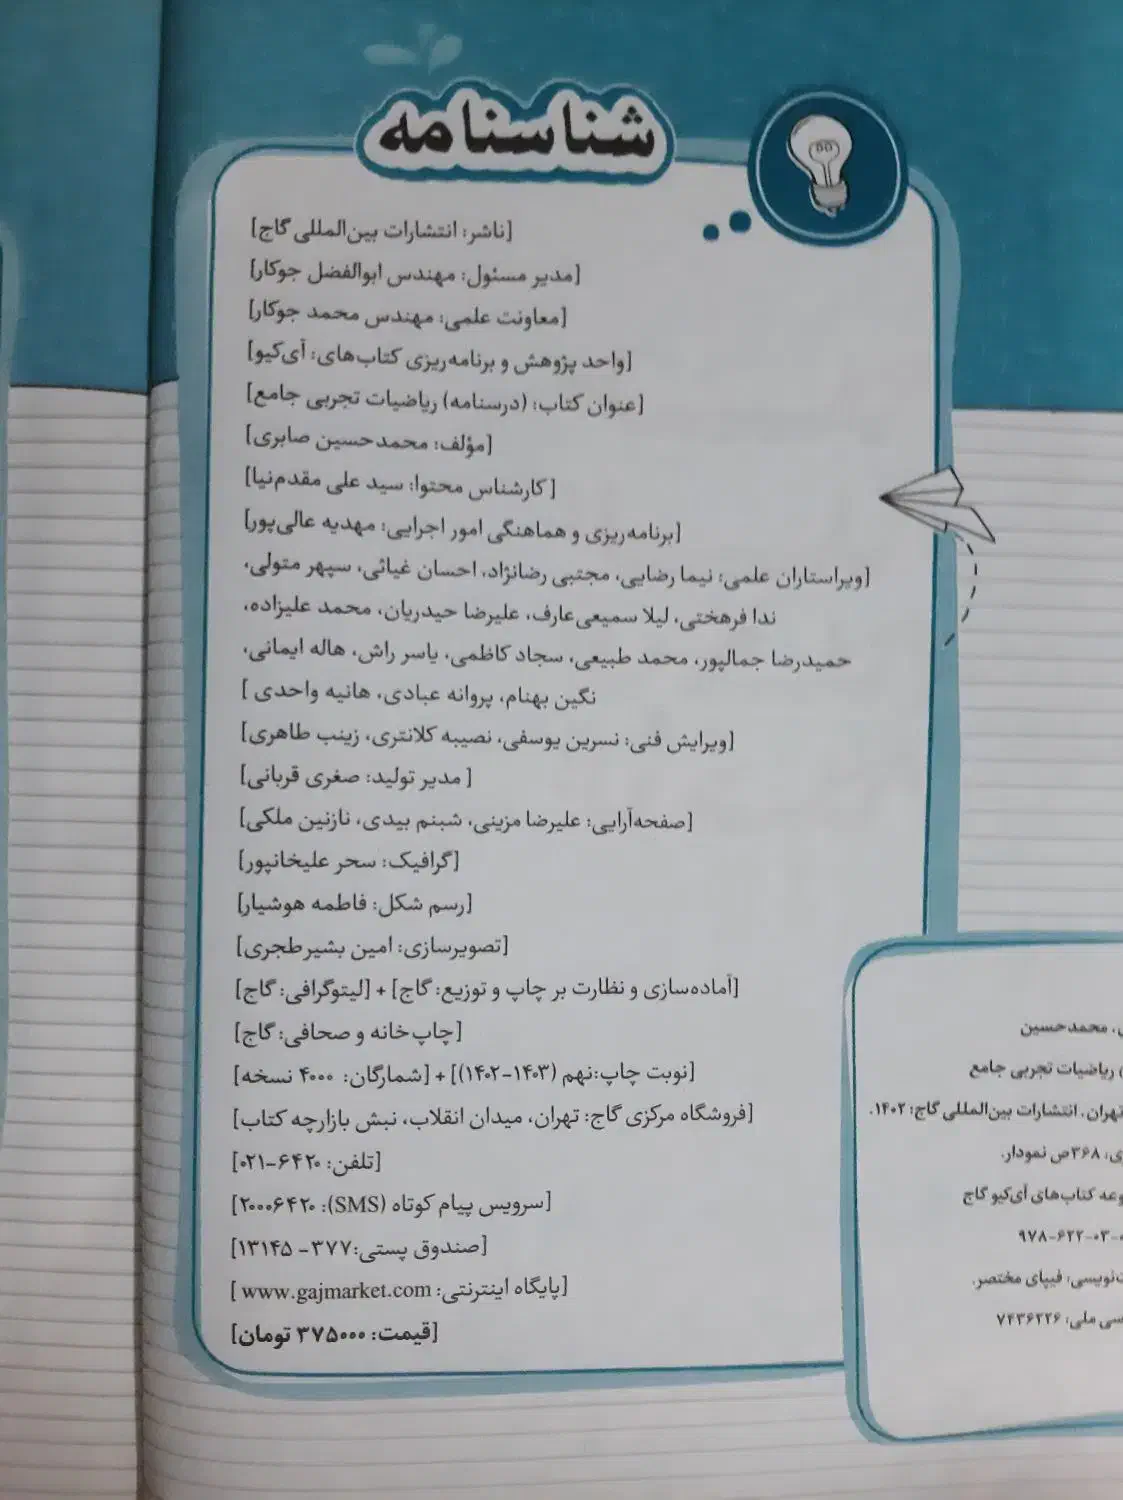 شناسنامه
[ناشر: انتشارات بین‌المللی گاج]
[مدیر مسئول: مهندس ابوالفضل جوکار]
[معاونت علمی: مهندس محمد جوکار]
[واحد پژوهش و برنامه‌ریزی کتاب‌های: آی‌کیو]
[عنوان کتاب: (درسنامه) ریاضیات تجربی جامع]
[مؤلف: محمدحسین صابری]
[کارشناس محتوا: سید علی مقدم‌نیا]
[برنامه‌ریزی و هماهنگی امور اجرایی: مهدیه عالی‌پور]
[ویراستاران علمی: نیما رضایی، مجتبی رضانژاد، احسان غیاثی، سپهر متولی،
ندا فرهختی، لیلا سمیعی‌عارف، علیرضا حیدریان، محمد علیزاده،
حمیدرضا جمالپور، محمد طبیعی، سجاد کاظمی، یاسر راش، هاله ایمانی،
نگین بهنام، پروانه عبادی، هانیه واحدی ]
[ویرایش فنی: نسرین یوسفی، نصیبه کلانتری، زینب طاهری]
[ مدیر تولید: صغری قربانی]
[صفحه‌آرایی: علیرضا مزینی، شبنم بیدی، نازنین ملکی]
[گرافیک: سحر علیخانپور]
[رسم شکل: فاطمه هوشیار]
[تصویرسازی: امین بشیرطجری]
[آماده‌سازی و نظارت بر چاپ و توزیع: گاج] + [لیتوگرافی: گاج]
[چاپ‌خانه و صحافی: گاج]
[نوبت چاپ:نهم (۱۴۰۳-۱۴۰۲)] + [شمارگان: ۴۰۰۰ نسخه]
[فروشگاه مرکزی گاج: تهران، میدان انقلاب، نبش بازارچه کتاب]
[تلفن: ۶۴۲۰-۰۲۱]
[سرویس پیام کوتاه (SMS): ۲۰۰۰۶۴۲۰]
[صندوق پستی:۳۷۷- ۱۳۱۴۵]
[پایگاه اینترنتی: www.gajmarket.com ]
[قیمت: ۳۷۵۰۰۰ تومان]
محمدحسین
ریاضیات تجربی جامع
تهران، انتشارات بین‌المللی گاج: ۱۴۰۲.
۳۶۸ص نمودار.
کتاب‌های آی‌کیو گاج
۹۷۸-۶۲۲-۰۳-۰
فیپای مختصر.
ملی: ۷۴۳۶۲۲۶